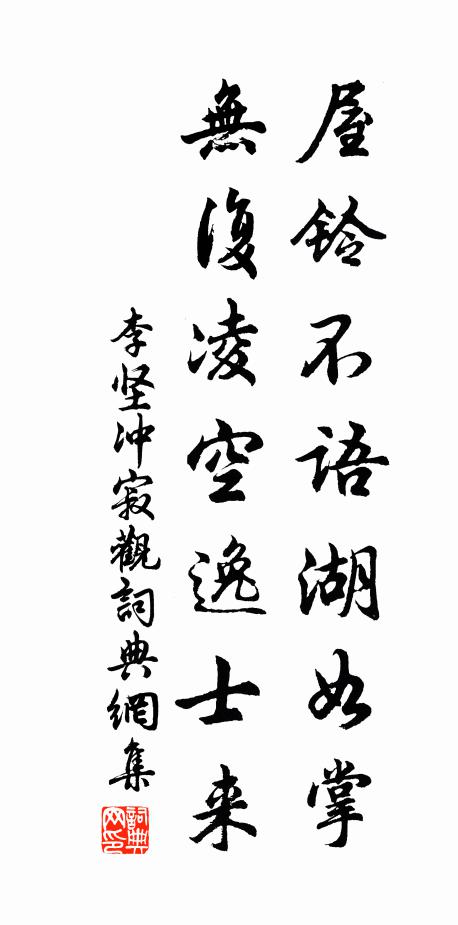 屋鈴不語湖如掌
無復凌空逸士来
李坚冲寂觀詞典網集
詞典網印